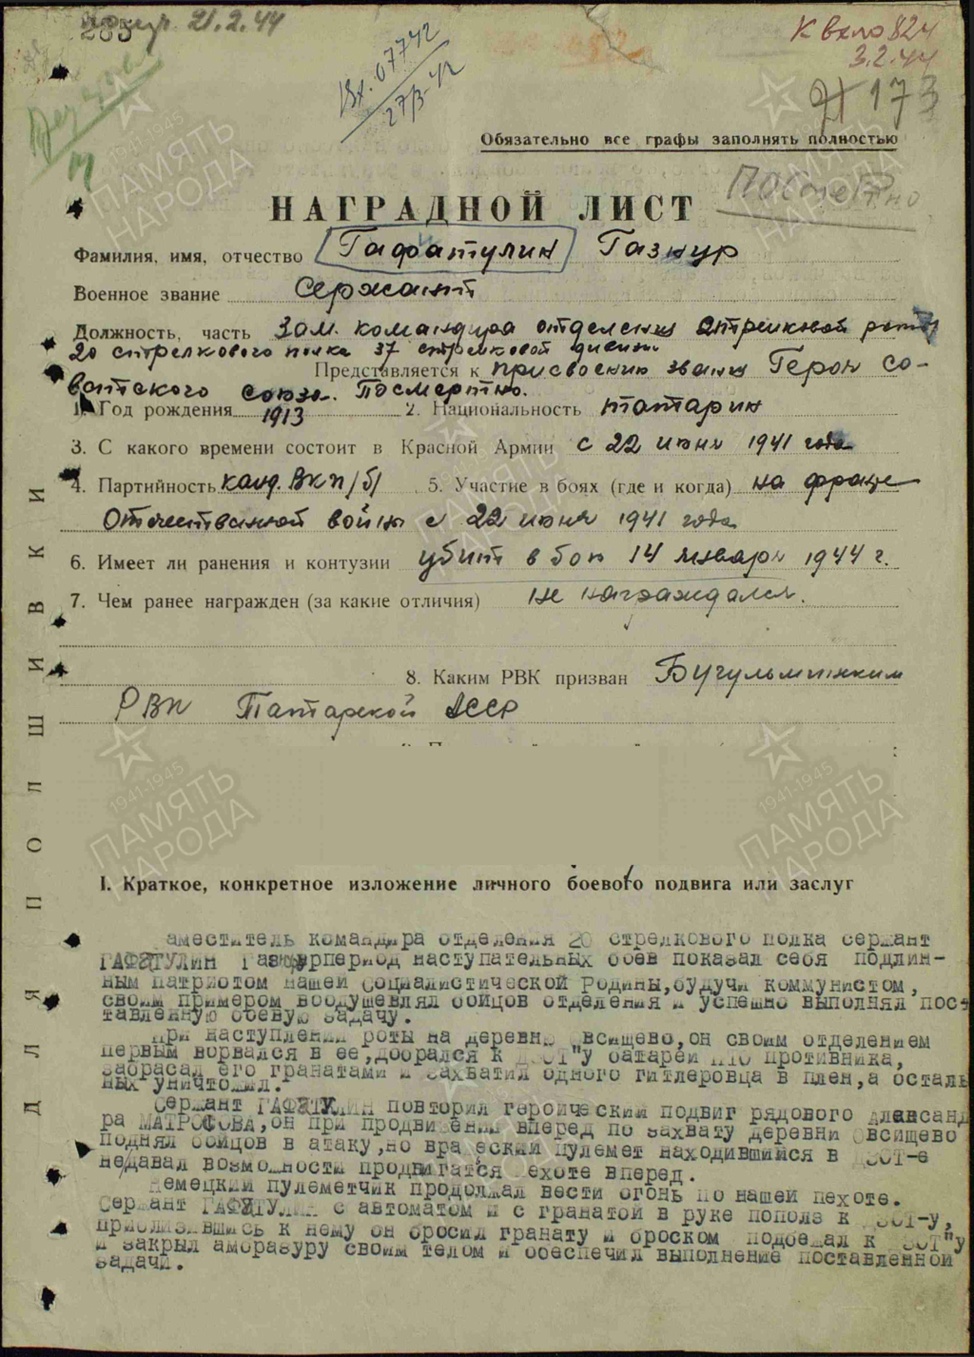 285
21.2.44
Вх. 07742
27/3-44
К вх no 824
3.2.44
173
Обязательно все графы заполнять полностью
Посмертно
НАГРАДНОЙ ЛИСТ
Фамилия, имя, отчество Гафатулин Газнур
Военное звание Сержант
Должность, часть Зам. командира отделения стрелковой роты
20 стрелкового полка 37 стрелковой дивизии
Представляется к присвоению звания Герой Со-
ветского Союза. Посмертно.
1. Год рождения 1913 2. Национальность татарин
3. С какого времени состоит в Красной Армии с 22 июня 1941 года
4. Партийность канд. ВКП/б/ 5. Участие в боях (где и когда) на фронте
Отечественной войны с 22 июня 1941 года
6. Имеет ли ранения и контузии убит в бою 14 января 1944 г.
7. Чем ранее награжден (за какие отличия) не награждался.
8. Каким РВК призван Бугульминским
РВК Татарской АССР
ДЛЯ ПОДШИВКИ
I. Краткое, конкретное изложение личного боевого подвига или заслуг
аместитель командира отделения 20 стрелкового полка сержант
ГАФАТУЛИН Газнур период наступательных боев показал себя подлин-
ным патриотом нашей социалистической Родины, будучи коммунистом,
своим примером воодушевлял бойцов отделения и успешно выполнял пос-
тавленную боевую задачу.
При наступлении роты на деревню всищево, он своим отделением
первым ворвался в ее, добрался к ДЗОТ"у батареи ПТО противника,
забросал его гранатами и захватил одного гитлеровца в плен, а осталь
ных уничтожил.
Сержант ГАФАТУЛИН повторил героический подвиг рядового Александ
ра МАТРОСОВА, он при продвижении вперед по захвату деревни Овсищево
поднял бойцов в атаку, но вражеский пулемет находившийся в ДЗОТ-е
недавал возможности продвигатся пехоте вперед.
Немецкий пулеметчик продолжал вести огонь по нашей пехоте.
Сержант ГАФАТУЛИН с автоматом и с гранатой в руке пополз к ДЗОТ-у,
приблизившись к нему он бросил гранату и броском подбежал к ДЗОТ"у
и закрыл амбразуру своим телом и обеспечил выполнение поставленной
задачи.
ПАМЯТЬ НАРОДА
1941-1945